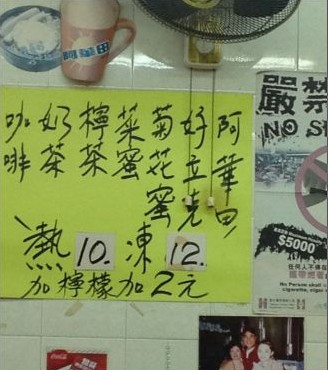 阿華田
咖啡
奶茶
檸茶
菜蜜
菊花蜜
好立克
阿華田
熱 10. 凍 12.
加檸檬加2元
嚴禁
NO S
$5000
任何人不得在
No Person shall
cigarette, cigar